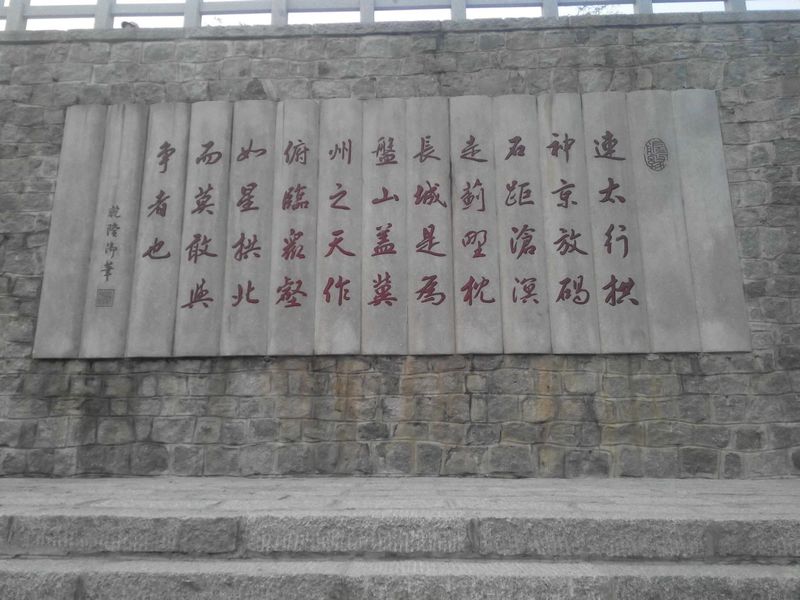 連太行拱
神京放碣
石距滄溟
走薊野枕
長城是為
盤山盖冀
州之天作
俯臨衆壑
如星拱北
而莫敢與
争者也
乾隆御筆